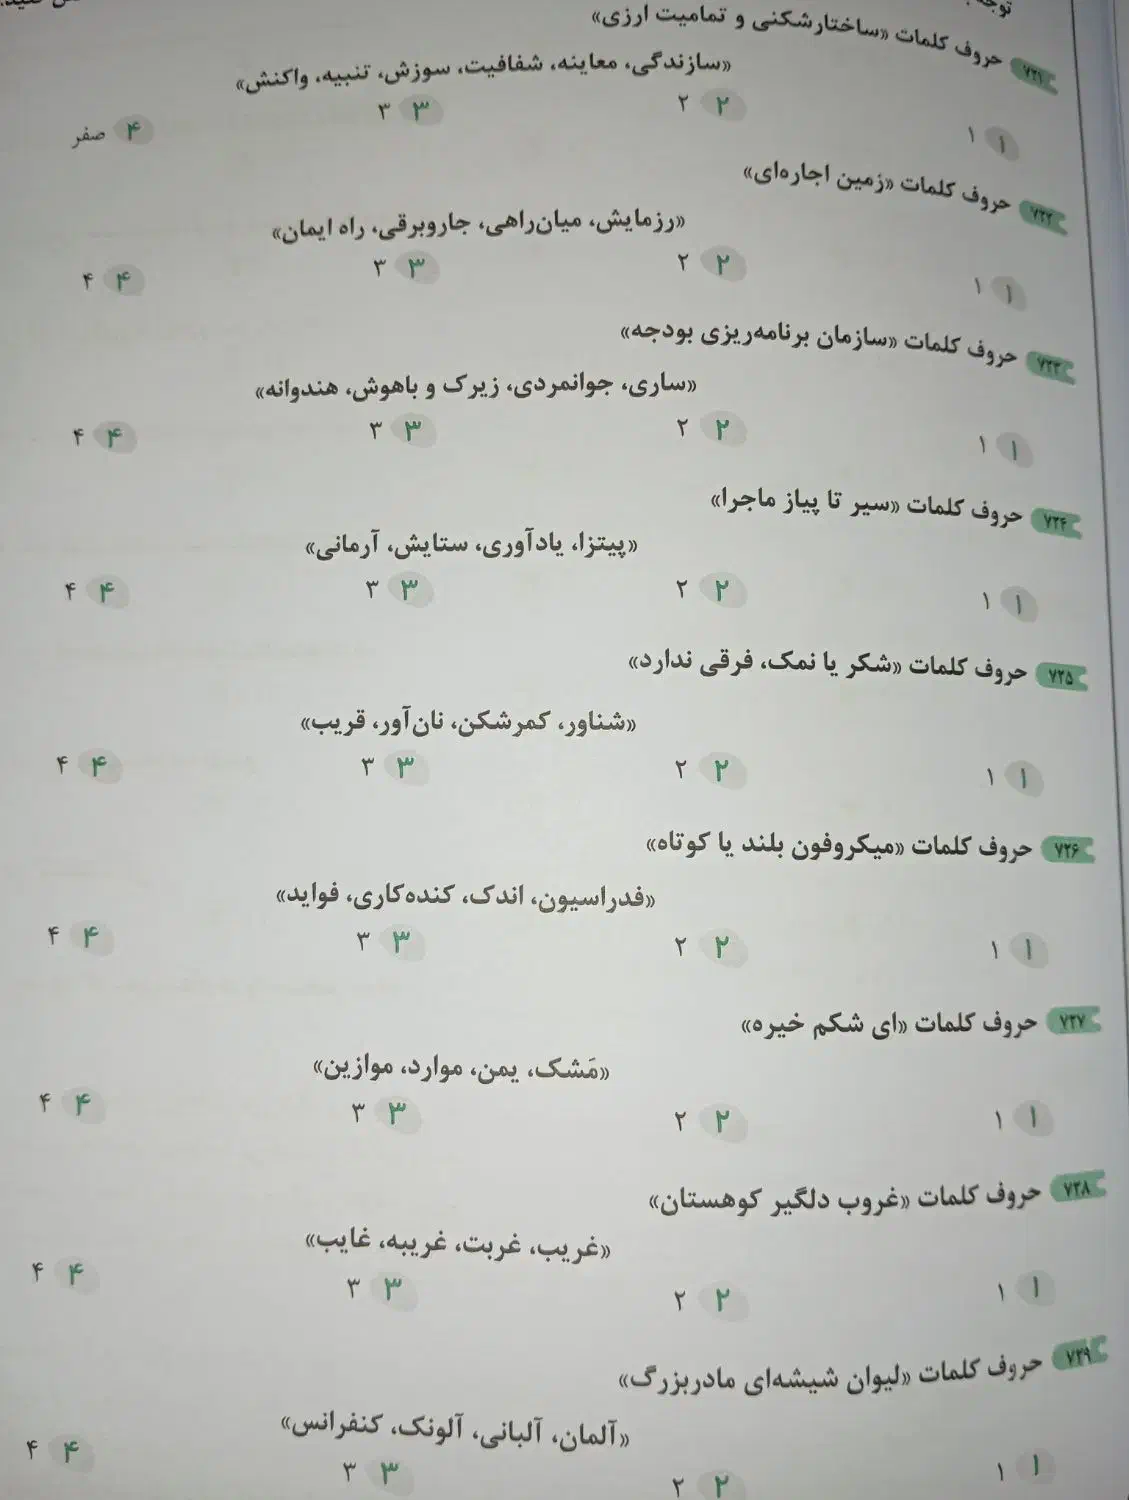 توجه
۷۲۱ حروف کلمات «ساختارشکنی و تمامیت ارزی»
«سازندگی، معاینه، شفافیت، سوزش، تنبیه، واکنش»
۱ ۱ ۲ ۲ ۳ ۳ ۴ صفر
۷۲۲ حروف کلمات «زمین اجاره‌ای»
«رزمایش، میان‌راهی، جاروبرقی، راه ایمان»
۱ ۱ ۲ ۲ ۳ ۳ ۴ ۴
۷۲۳ حروف کلمات «سازمان برنامه‌ریزی بودجه»
«ساری، جوانمردی، زیرک و باهوش، هندوانه»
۱ ۱ ۲ ۲ ۳ ۳ ۴ ۴
۷۲۴ حروف کلمات «سیر تا پیاز ماجرا»
«پیتزا، یادآوری، ستایش، آرمانی»
۱ ۱ ۲ ۲ ۳ ۳ ۴ ۴
۷۲۵ حروف کلمات «شکر یا نمک، فرقی ندارد»
«شناور، کمرشکن، نان‌آور، قریب»
۱ ۱ ۲ ۲ ۳ ۳ ۴ ۴
۷۲۶ حروف کلمات «میکروفون بلند یا کوتاه»
«فدراسیون، اندک، کنده‌کاری، فواید»
۱ ۱ ۲ ۲ ۳ ۳ ۴ ۴
۷۲۷ حروف کلمات «ای شکم خیره»
«مَشک، یمن، موارد، موازین»
۱ ۱ ۲ ۲ ۳ ۳ ۴ ۴
۷۲۸ حروف کلمات «غروب دلگیر کوهستان»
«غریب، غربت، غریبه، غایب»
۱ ۱ ۲ ۲ ۳ ۳ ۴ ۴
۷۲۹ حروف کلمات «لیوان شیشه‌ای مادربزرگ»
«آلمان، آلبانی، آلونک، کنفرانس»
۱ ۱ ۲ ۲ ۳ ۳ ۴ ۴